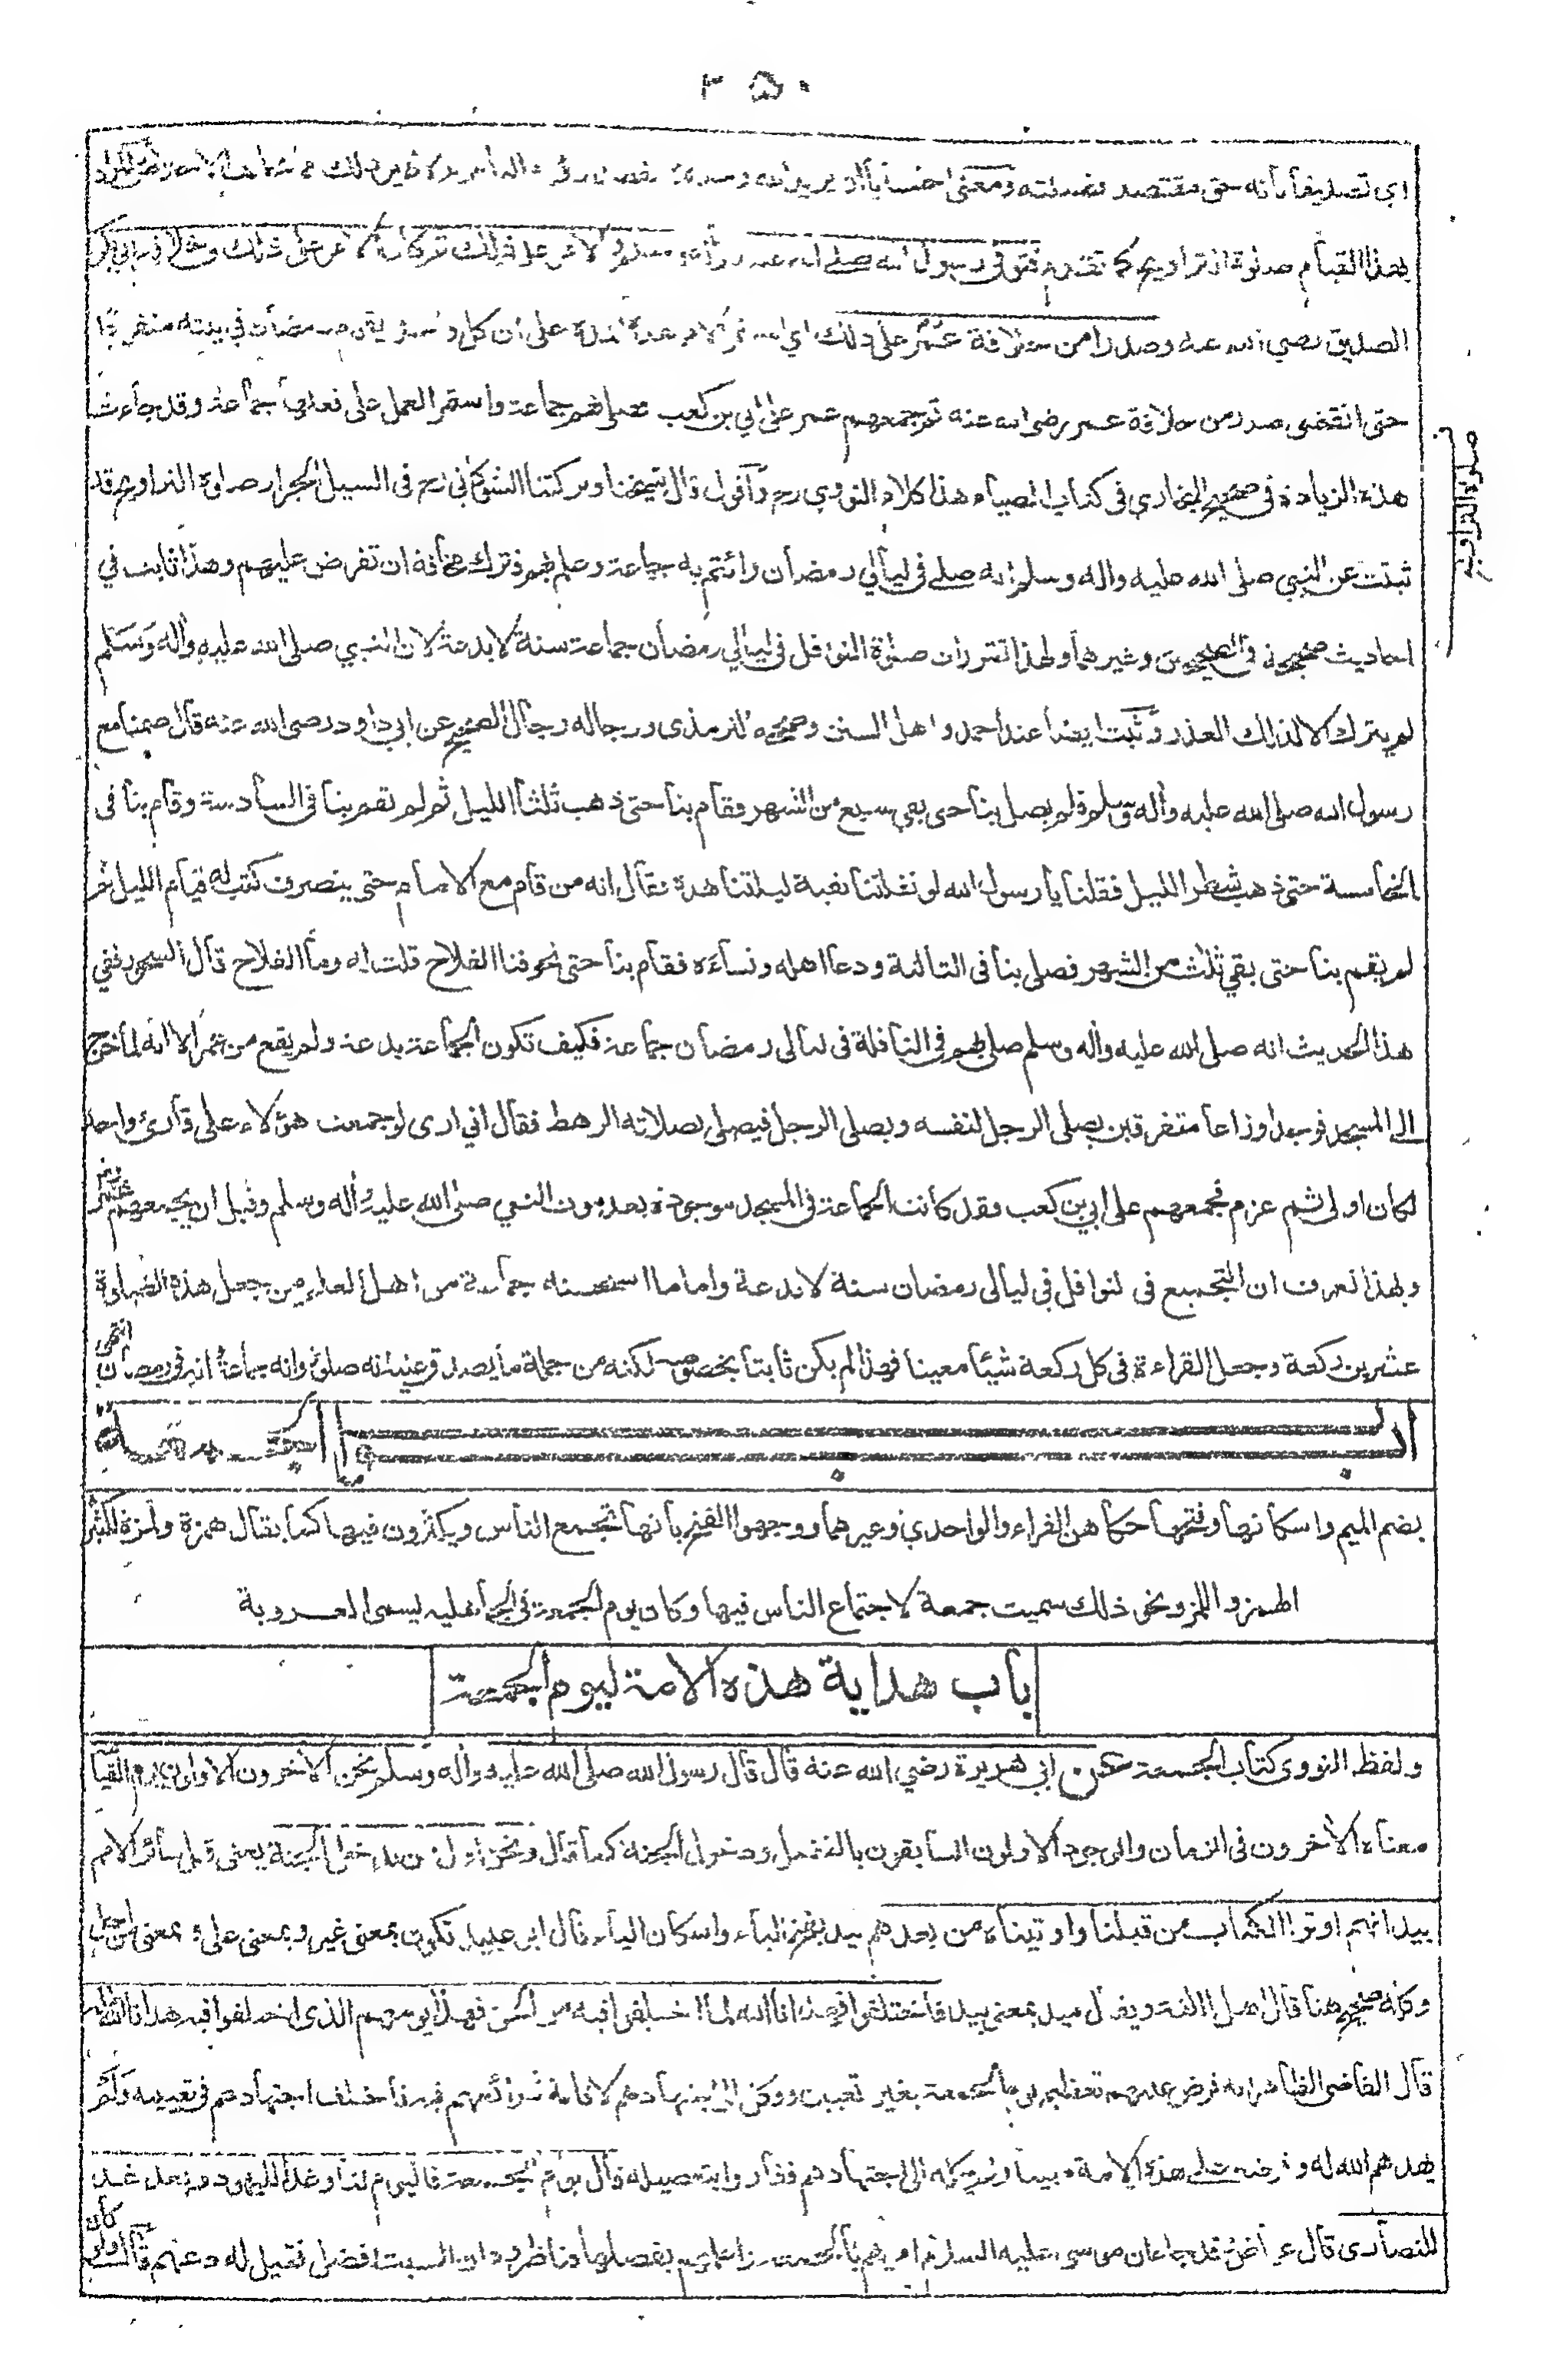 ٢٥٠
اي تصديقا بانه حق مقتصد فضيلته ومعنى احتسابا ان يريد الله وحده
بهذا القيام صلوة التراويح كما تقدم فتوفي رسول الله صلى الله عليه وآله وسلم والامر على ذلك ثم كان الامر على ذلك وخلافة ابي بكر
الصديق رضي الله عنه وصدرا من خلافة عمر على ذلك اي استمر الامر هذه المدة على ان كل واحد يقوم رمضان في بيته منفردا
حتى انقضى صدر من خلافة عمر رضي الله عنه ثم جمعهم عمر على ابي بن كعب فصلى بهم جماعة واستمر العمل على فعلها جماعة وقد جاءت
هذه الزيادة في صحيح البخاري في كتاب الصيام هذا كلام النووي رح وأقول قال شيخنا وبركتنا الشوكاني رح في السيل الجرار صلوة التراويح قد
ثبتت عن النبي صلى الله عليه واله وسلم انه صلى في ليالي رمضان وائتم به جماعة وعلم بهم فترك مخافة ان تفرض عليهم وهذا ثابت في
احاديث صحيحة في الصحيحين وغيرهما ولهذا تقرر ان صلوة النوافل في ليالي رمضان جماعة سنة لا بدعة لان النبي صلى الله عليه وآله وسلم
لم يترك الا لذلك العذر وثبت ايضا عند احمد واهل السنن وصححه الترمذي ورجاله رجال الصحيح عن ابي داود رضي الله عنه قال صمنا مع
رسول الله صلى الله عليه وآله وسلم فلم يصل بنا حتى بقي سبع من الشهر فقام بنا حتى ذهب ثلثا الليل ثم لم تقم بنا في السادسة وقام بنا في
الخامسة حتى ذهب شطر الليل فقلنا يا رسول الله لو نفلتنا بقية ليلتنا هذه فقال انه من قام مع الامام حتى ينصرف كتب له قيام الليل ثم
لم يقم بنا حتى بقي ثلاث من الشهر فصلى بنا في الثالثة ودعا اهله ونساءه فقام بنا حتى تخوفنا الفلاح قلت له وما الفلاح قال السحور ففي
هذا الحديث انه صلى الله عليه وآله وسلم صلى بهم في النافلة في ليالى رمضان جماعة فكيف تكون الجماعة بدعة ولم يقع من عمر الا انه لما خرج
الى المسجد فوجد اوزاعا متفرقين يصلى الرجل لنفسه ويصلى الرجل فيصلى بصلاته الرهط فقال اني ارى لو جمعت هؤلاء على قارئ واحد
لكان اولى ثم عزم فجمعهم على ابي بن كعب فقد كانت الجماعة في المسجد موجودة بعد موت النبي صلى الله عليه وآله وسلم وقبل ان يجمعهم عمر
وبهذا تعرف ان التجميع في النوافل في ليالى رمضان سنة لا بدعة واما ما استحسنه جماعة من اهل العلم من جعل هذه الصلوة
عشرين ركعة وجعل القراءة في كل ركعة شيئا معينا فهذا لم يكن ثابتا بخصوصه لكنه من جملة ما يصدق عليه انه صلوة وانه جماعة وانه في رمضان انتهى
صلوة التراويح
ابواب الجمعة
بضم الميم واسكانها وفتحها حكاهن الفراء والواحدي وغيرهما ووجهوا الفتح بانها تجمع الناس ويكثرون فيها كما يقال همزة ولمزة لكثرة
الهمز واللمز ونحو ذلك سميت جمعة لاجتماع الناس فيها وكان يوم الجمعة في الجاهلية يسمى العروبة
باب هداية هذه الامة ليوم الجمعة
ولفظ النووي كتاب الجمعة عن ابي هريرة رضي الله عنه قال قال رسول الله صلى الله عليه وآله وسلم نحن الآخرون الاولون يوم القيامة
معناه الآخرون في الزمان والوجود الاولون السابقون بالفضل ودخول الجنة كما قال ونحن اول من يدخل الجنة يعنى قبل سائر الامم
بيد انهم اوتوا الكتاب من قبلنا واوتيناه من بعدهم بيد بفتح الباء واسكان الياء قال ابو عبيد تكون بمعنى غير وبمعنى على وبمعنى من اجل
وكله صحيح هنا قال اهل اللغة ويقال ميد بمعنى بيد فاختلفوا فهدانا الله لما اختلفوا فيه من الحق فهذا يومهم الذي اختلفوا فيه هدانا الله له
قال القاضي الظاهر انه فرض عليهم تعظيم يوم الجمعة بغير تعيين ووكل الى اجتهادهم لاقامة شرائعهم فيه فاختلف اجتهادهم في تعيينه ولم
يهدهم الله له وفرضه على هذه الامة مبينا ولم يكله الى اجتهادهم ففازوا بتفضيله قال يوم الجمعة فاليوم لنا وغدا لليهود وبعد غد
للنصارى قال وقد جاء ان موسى عليه السلام امرهم بالجمعة واعلمهم بفضلها فناظروه ان السبت افضل فقيل له دعهم قال